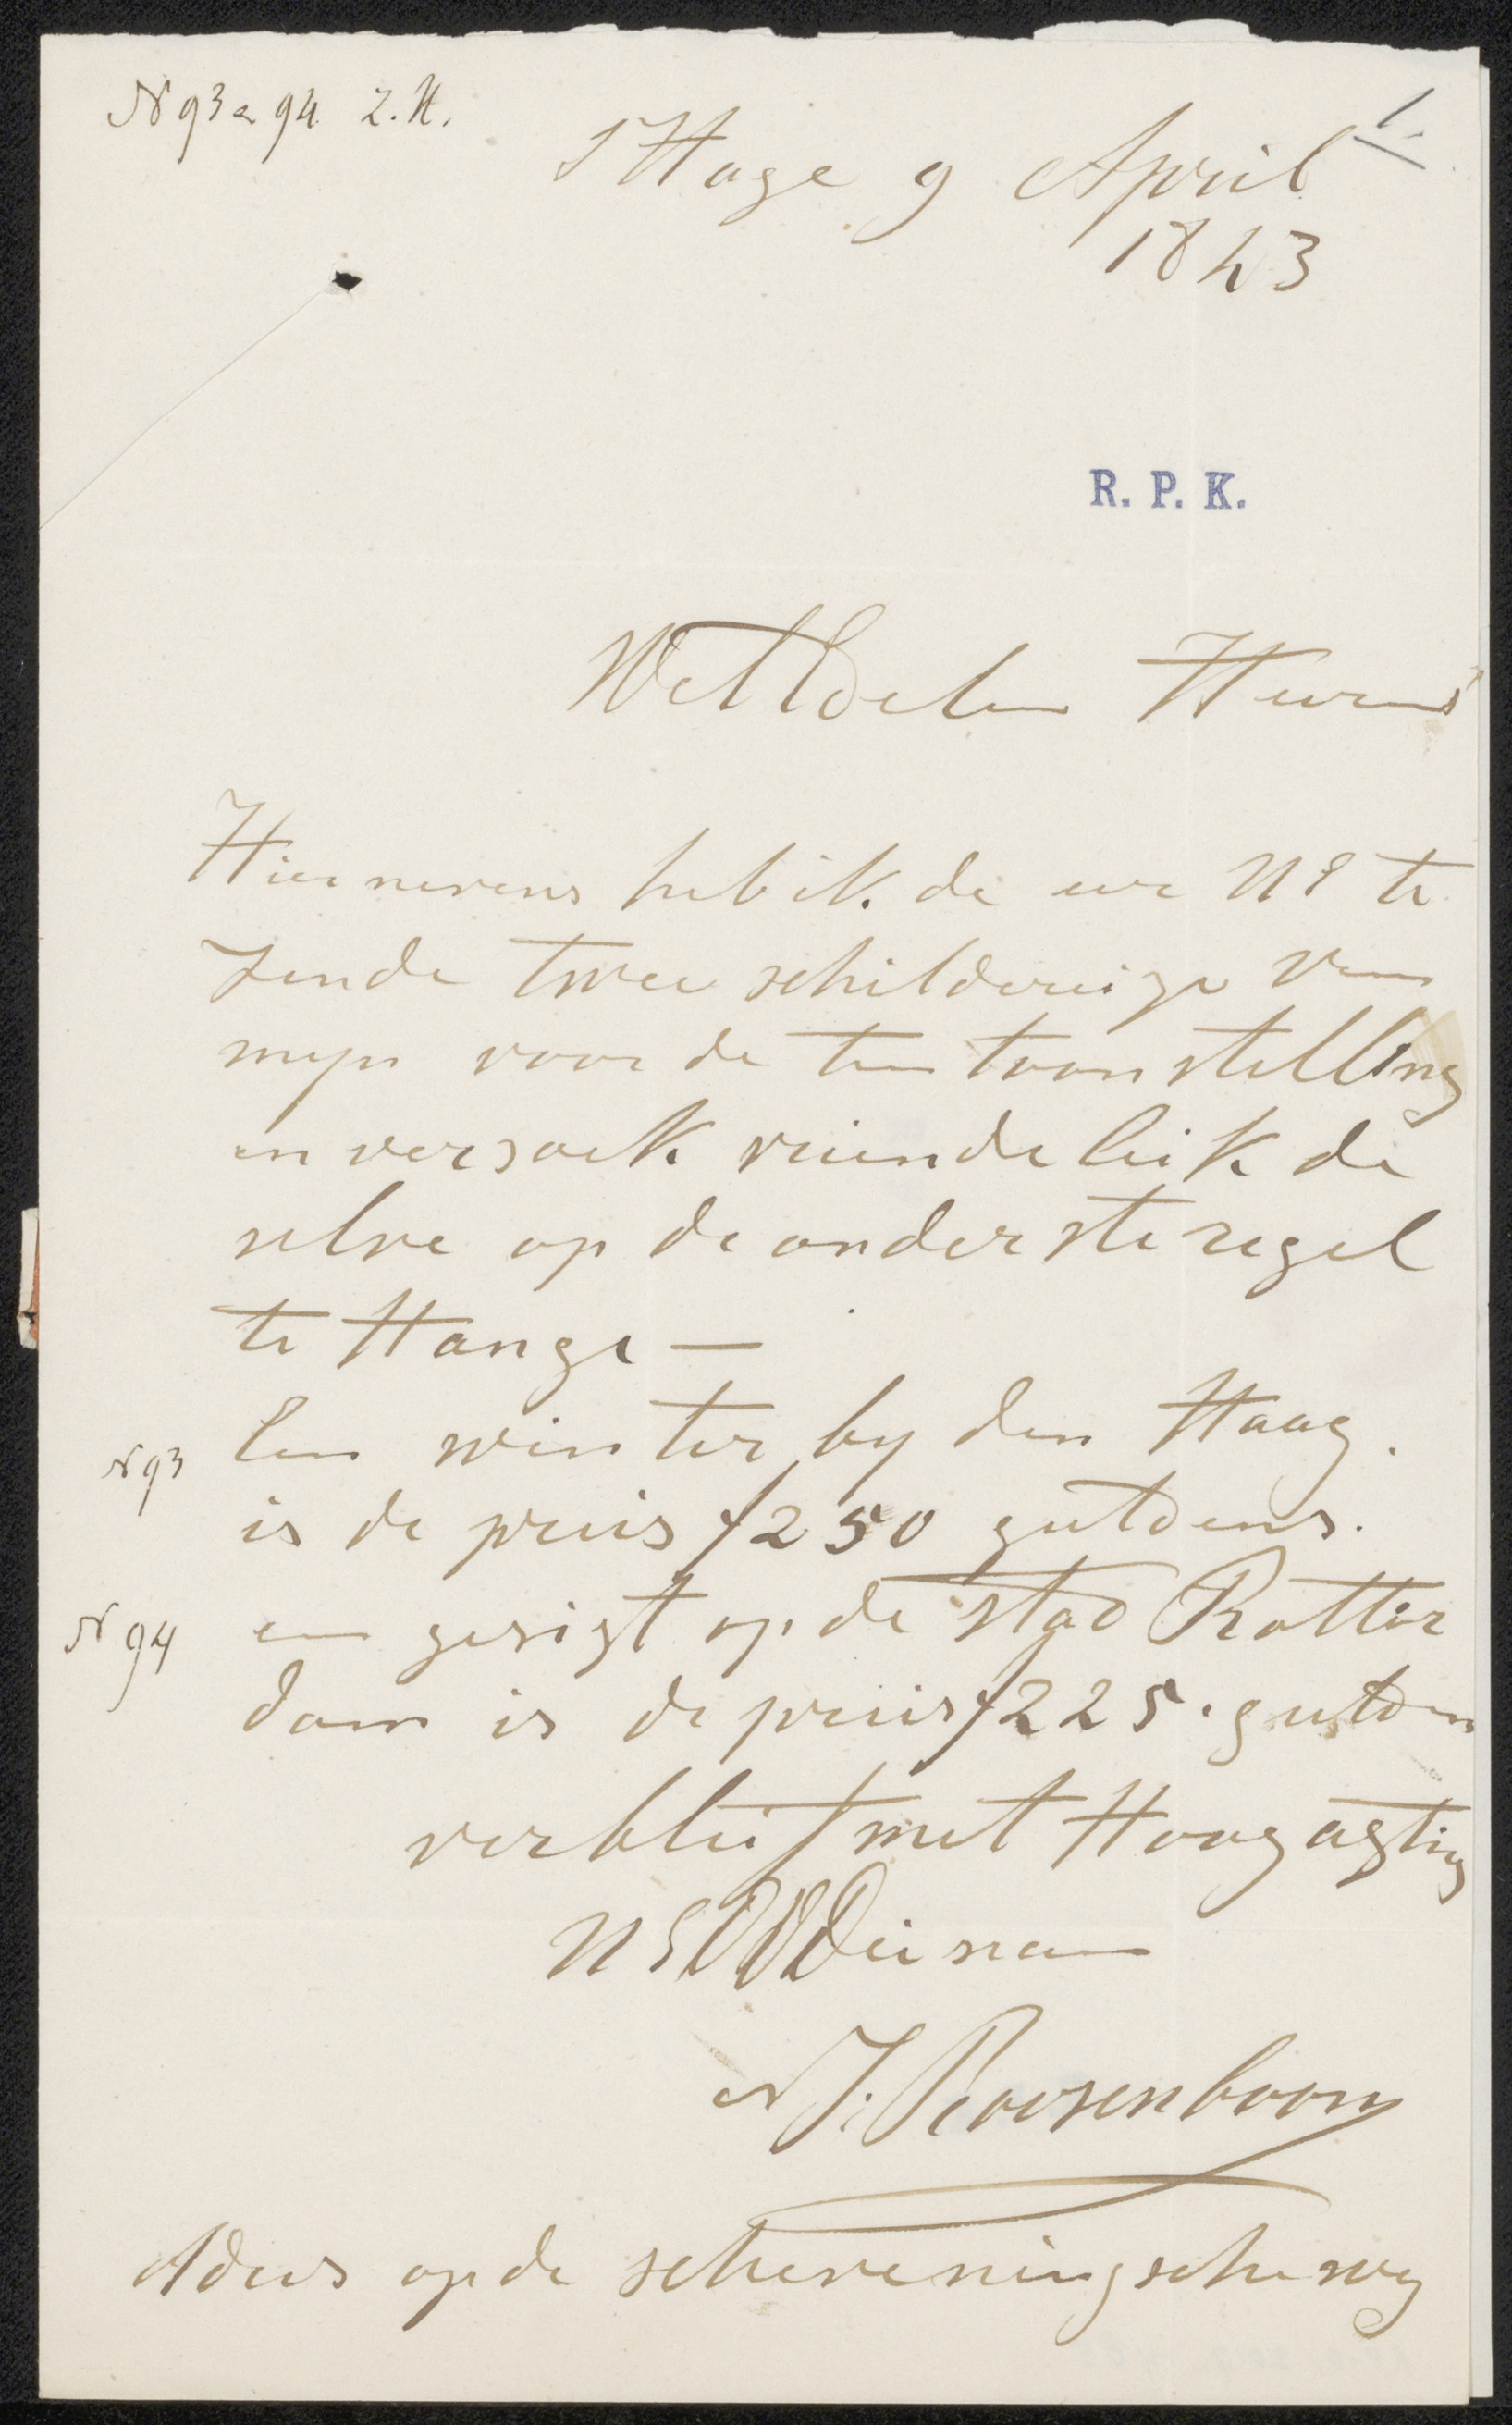 N 93 a 94 Z.H.
1.
S Hage 9 April
1843
R. P. K.
Wel Edelen Heeren
Hier nevens heb ik de eer UE te
zende twee schildereije van
mijn voor de ten toon stelling
en versoek vriendeleik de
selve op de onderste regel
te Hange —
N 93 Een winter by den Haag.
is de preis f 250 guldens.
N 94 een gesigt op de stad Rotter
dam is de preis f 225. gulden
verbleift met Hoog agting
UEDWDienaar
N. J. Roosenboom
Adres op de scheveningsche weg